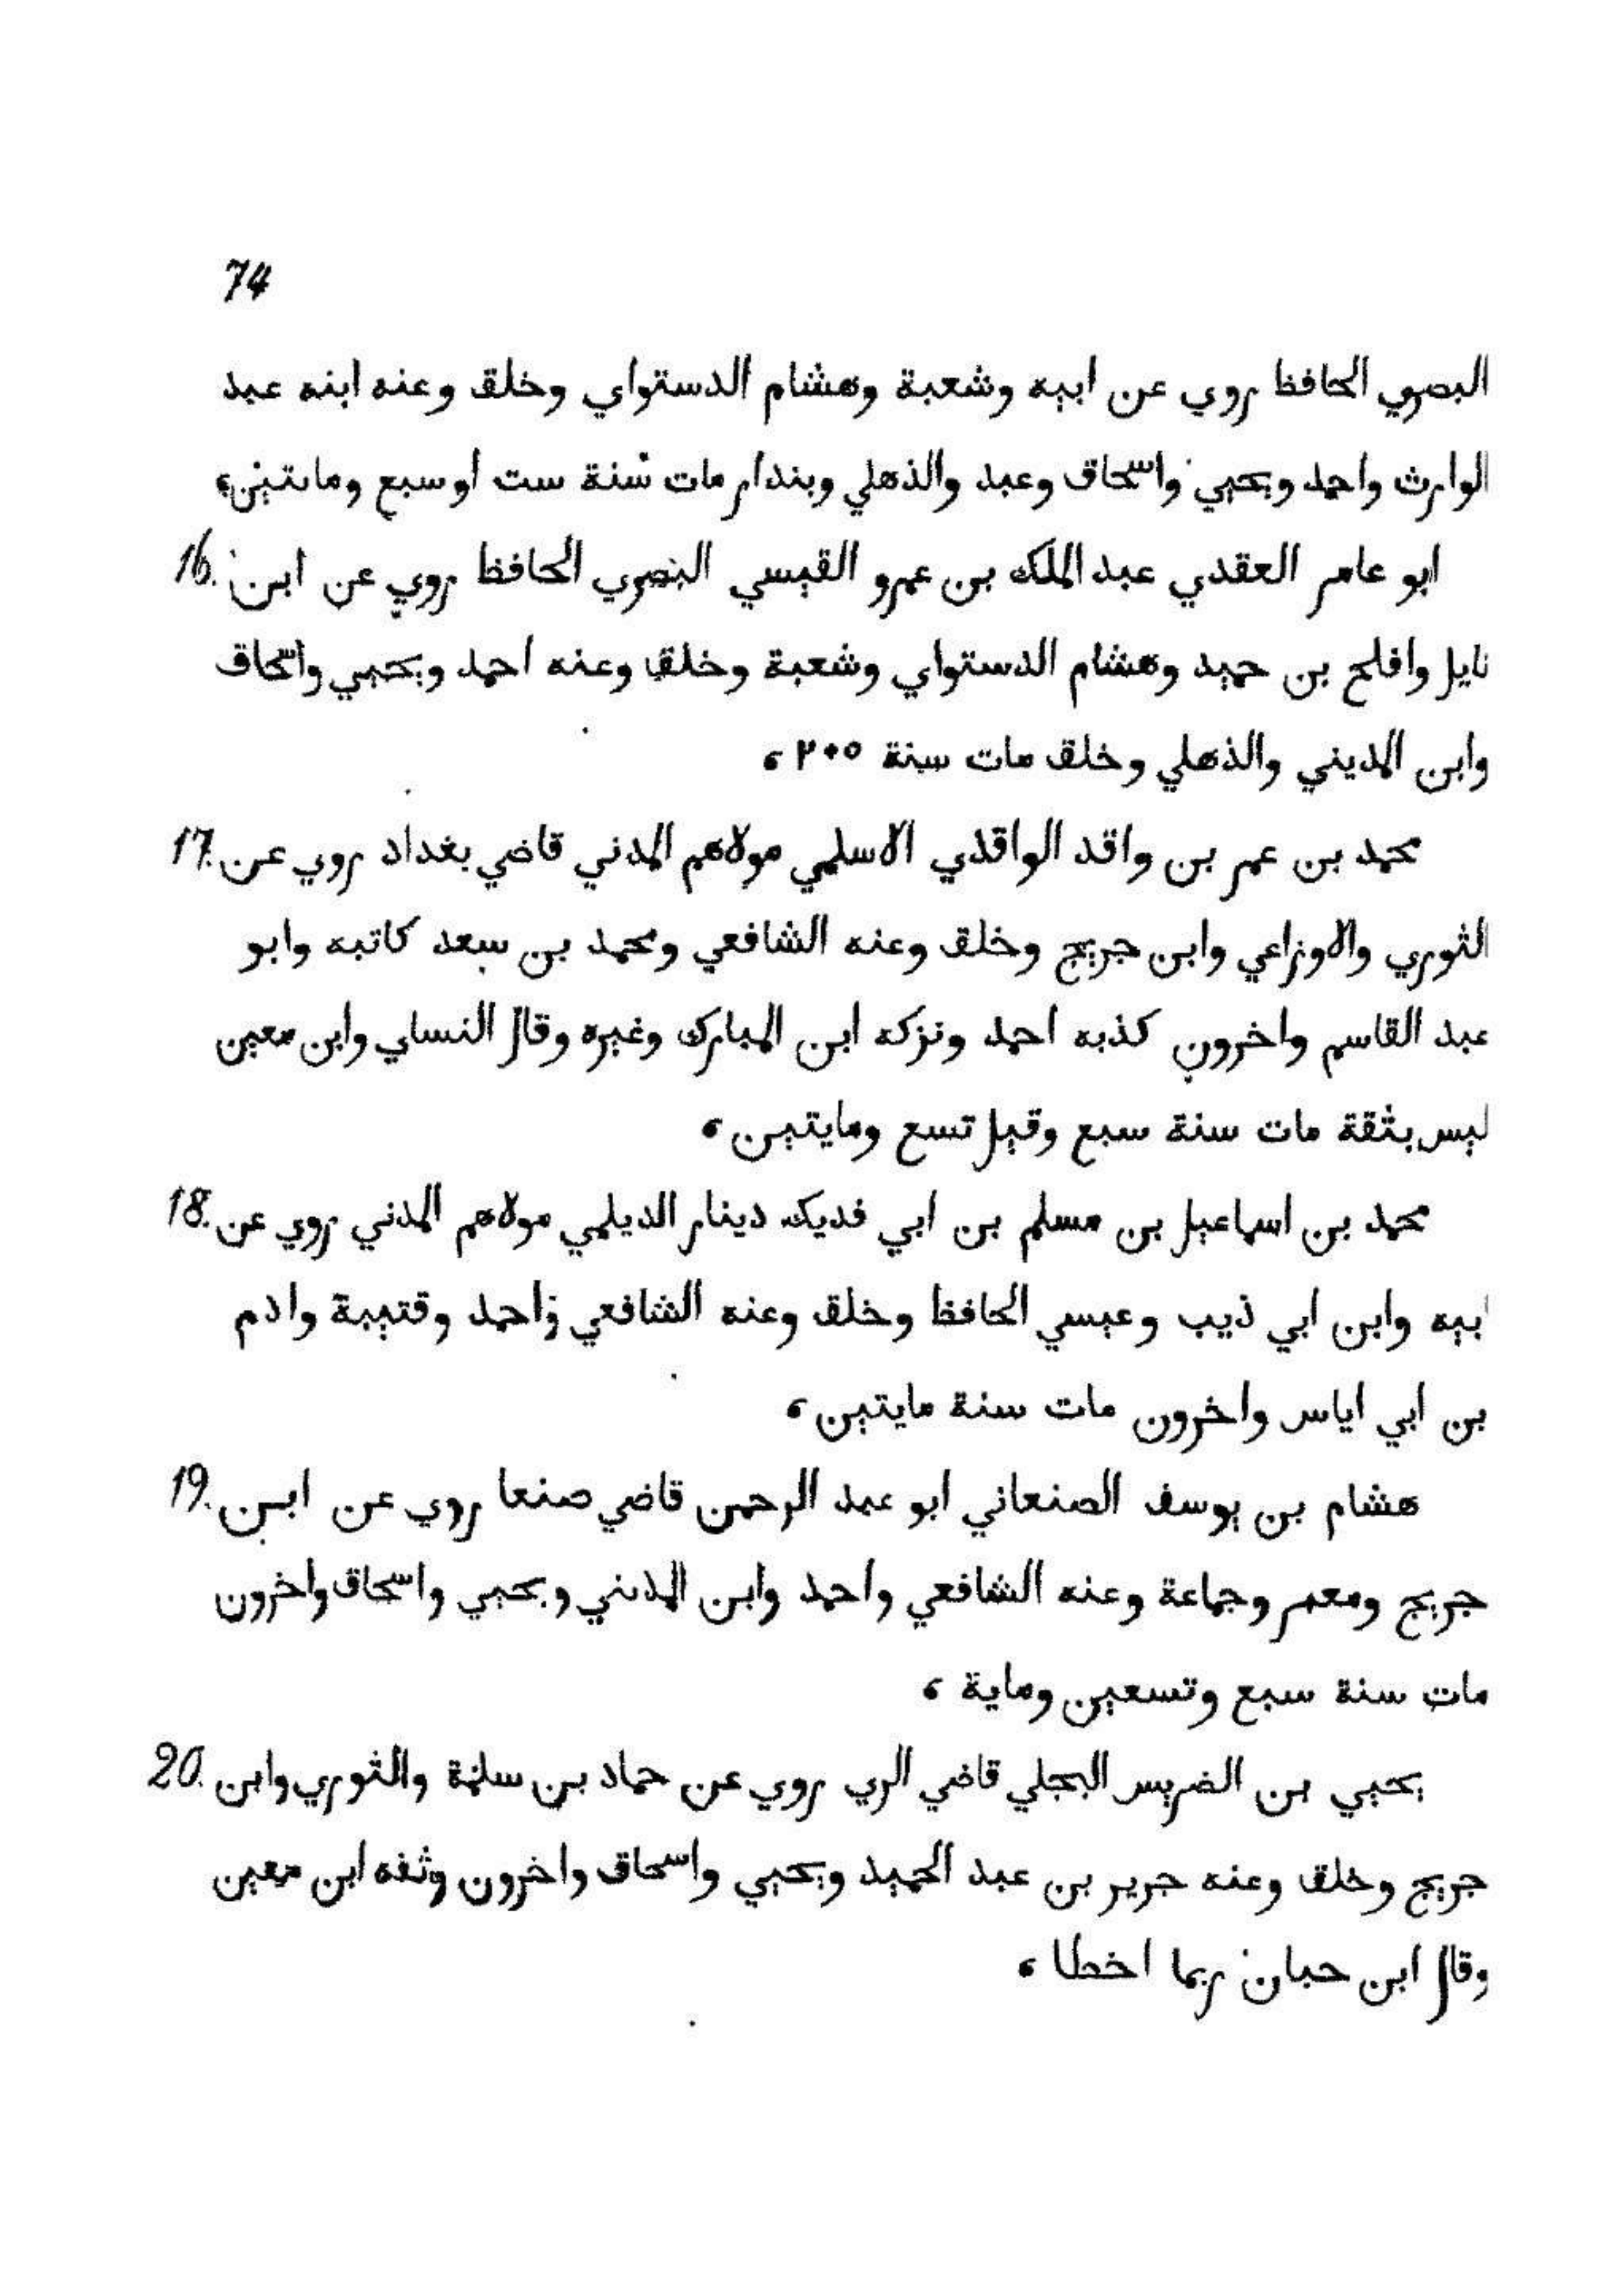 74
البصري الحافظ روي عن ابيه وشعبة وهشام الدستواي وخلق وعنه ابنه عبد
الوارث واحمد ويحيي واسحاق وعبد والذهلي وبندار مات سنة ست او سبع ومايتين،
16. ابو عامر العقدي عبد الملك بن عمرو القيسي البصري الحافظ روي عن ابن
نايل وافلح بن حميد وهشام الدستواي وشعبة وخلق وعنه احمد ويحيي واسحاق
وابن المديني والذهلي وخلق مات سنة ٢٠٥،
17. محمد بن عمر بن واقد الواقدي الاسلمي مولاهم المدني قاضي بغداد روي عن
الثوري والاوزاعي وابن جريج وخلق وعنه الشافعي ومحمد بن سعد كاتبه وابو
عبد القاسم واخرون كذبه احمد ونزكه ابن المبارك وغيره وقال النساي وابن معين
ليس بثقة مات سنة سبع وقيل تسع ومايتين،
18. محمد بن اسماعيل بن مسلم بن ابي فديك دينار الديلمي مولاهم المدني روي عن
ابيه وابن ابي ذيب وعيسي الحافظ وخلق وعنه الشافعي واحمد وقتيبة وادم
بن ابي اياس واخرون مات سنة مايتين،
19. هشام بن يوسف الصنعاني ابو عبد الرحمن قاضي صنعا روي عن ابن
جريج ومعمر وجماعة وعنه الشافعي واحمد وابن المديني ويحيي واسحاق واخرون
مات سنة سبع وتسعين وماية،
20. يحيي بن الضريس البجلي قاضي الري روي عن حماد بن سلمة والثوري وابن
جريج وخلق وعنه جرير بن عبد الحميد ويحيي واسحاق واخرون وثقه ابن معين
وقال ابن حبان ربما اخطا،